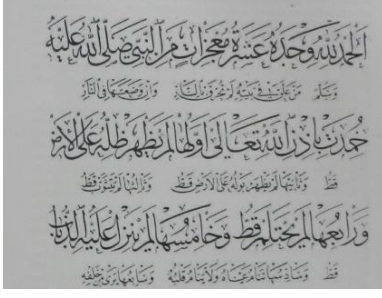 الحمد لله وحده عشرة معجزات من النبي صلى الله عليه
وسلم من علق في بيته لم تحرق بالنار وان وضعها في النار
خمدت باذن الله تعالى اولها لم يظهر ظله على الارض
قط وثانيها لم يظهر بوله على الارض قط وثالثها لم يتثوب قط
ورابعها لم يحتلم قط وخامسها لم ينزل عليه الذباب
قط وسادسها تنام عيناه ولا ينام قلبه وسابعها يرى من خلفه